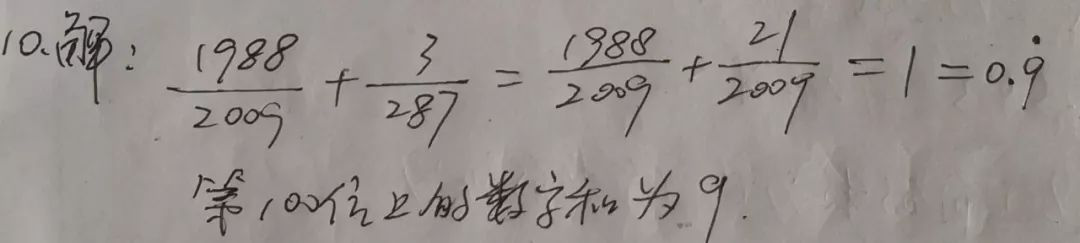 10.解: 1988/2009 + 3/287 = 1988/2009 + 21/2009 = 1 = 0.9̇
第100位上的数字和为9.